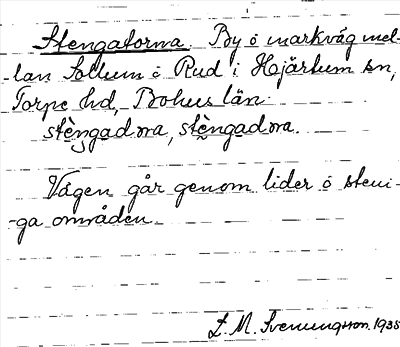 Stengatorna. By o markväg mel-
lan Sollum o Rud i Hjärtum sn,
Torpe hd, Bohus län.
stèngadɷra, stèngadɷra.
Vägen går genom lider o steni-
ga områden.
L. M. Svenungsson. 1935